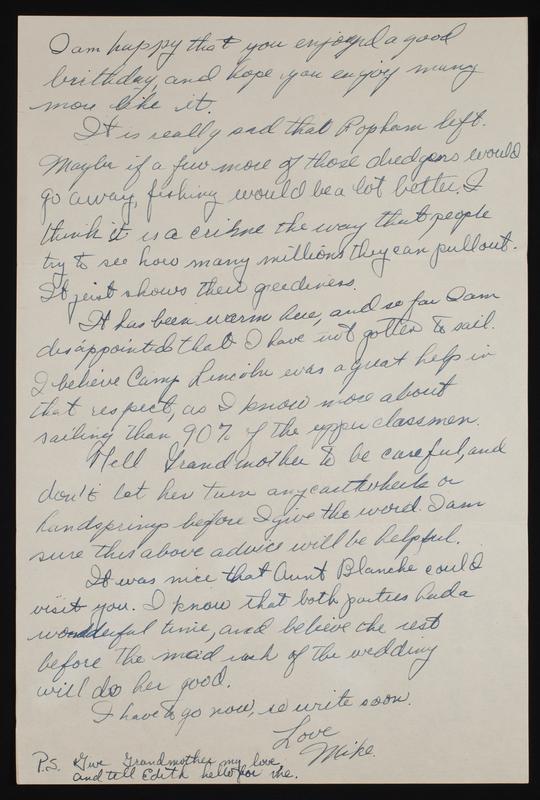 I am happy that you enjoyed a good
birthday, and hope you enjoy many
more like it.
It is really sad that Popham left.
Maybe if a few more of those dredgers would
go away, fishing would be a lot better. I
think it is a crime the way that people
try to see how many millions they can pull out.
It just shows their greediness.
It has been warm here, and so far I am
disappointed that I have not gotten to sail.
I believe Camp Lincoln was a great help in
that respect, as I know more about
sailing than 90% of the upper classmen.
Tell Grandmother to be careful, and
don't let her turn any cartwheels or
handsprings before I give the word. I am
sure this above advice will be helpful.
It was nice that Aunt Blanche could
visit you. I know that both parties had a
wonderful time, and believe the rest
before the mad rush of the wedding
will do her good.
I have to go now, so write soon.
Love
Mike.
P.S. Give Grandmother my love,
and tell Edith hello for me.